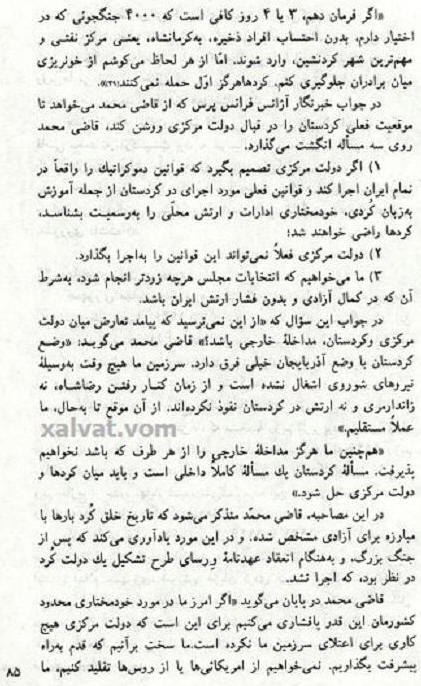 «اگر فرمان دهم، ۳ یا ۴ روز کافی است که ۴۰۰۰ جنگجوئی که در
اختیار دارم، بدون احتساب افراد ذخیره، به‌کرمانشاه، یعنـی مرکز نفتـی و
مهم‌ترین شهر کردنشین، وارد شوند. امّا از هر لحاظ می‌کوشم از خونریزی
میان برادران جلوگیری کنم. کردهاهرگز اوّل حمله نمی‌کنند(۲۹)».
در جواب خبرنگار آژانس فرانس پرس که از قاضی محمد می‌خواهد تا
موقعیت فعلی کردستان را در قبال دولت مرکزی روشن کند، قاضی محمد
روی سه مسأله انگشت می‌گذارد.
۱) اگر دولت مرکزی تصمیم بگیرد که قوانین دموکراتیك را واقعاً در
تمام ایران اجرا کند و قوانین فعلی مورد اجرای در کردستان از جمله آموزش
به‌زبان کُردی، خودمختاری ادارات و ارتش محلّی را به‌رسمیت بشناسد،
کردها راضی خواهند شد؛
۲) دولت مرکزی فعلاً نمی‌تواند این قوانین را به‌اجرا بگذارد.
۳) ما می‌خواهیم که انتخابات مجلس هرچه زودتر انجام شود، به‌شرط
آن که در کمال آزادی و بدون فشار ارتش ایران باشد.
در جواب این سؤال که «از این نمی‌ترسید که پیامد تعارض میان دولت
مرکزی وکردستان، مداخلهٔ خارجی باشد؟» قاضی محمد می‌گویـد: «وضـع
کردستان با وضع آذربایجان خیلی فرق دارد. سرزمین ما هیچ وقت به‌وسیلهٔ
نیروهای شوروی اشغال نشده است و از زمان کنـار رفتـن رضاشـاه، نه
ژاندارمری و نه ارتش در کردستان نفوذ نکرده‌اند. از آن موقع تا به‌حال، ما
عملاً مستقلیم.»
xalvat.com
«هم‌چنین ما هرگز مداخلهٔ خارجی را از هر طرف که باشد نخواهیم
پذیرفت. مسألهٔ کردستان یك مسألهٔ کاملاً داخلی است و باید میان کردها و
دولت مرکزی حل شود.»
در این مصاحبه، قاضی محمّد متذکر می‌شود که تاریخ خلق کُرد بارها با
مبارزه برای آزادی مشخص شده، و در این مورد یادآوری می‌کند که پس از
جنگ بزرگ، و به‌هنگام انعقاد عهدنامهٔ ورسای طرح تشکیل یك دولت کُرد
در نظر بود، که اجرا نشد.
قاضی محمد در پایان می‌گوید «اگر امرز ما در مورد خودمختاری محدود
کشورمان این قدر پافشاری می‌کنیم برای این است که دولت مرکزی هیچ
کاری برای اعتلای سرزمین ما نکرده است.ما سخت برآنیم که قدم به‌راه
پیشرفت بگذاریم. نمی‌خواهیم از امریکائی‌ها یا از روس‌ها تقلید کنیم، ما
۸۵